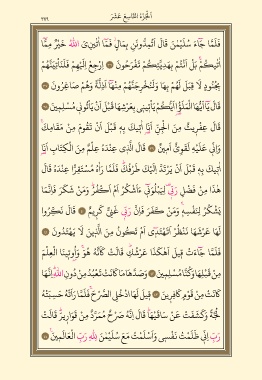 الجزء التاسع عشر
٣٧٩
فَلَمَّا جَاءَ سُلَيْمٰنَ قَالَ اَتُمِدُّونَنِ بِمَالٍ فَمَا اٰتٰينِىَ اللّٰهُ خَيْرٌ مِمَّا
اٰتٰيكُمْ بَلْ اَنْتُمْ بِهَدِيَّتِكُمْ تَفْرَحُونَ ٣٦ اِرْجِعْ اِلَيْهِمْ فَلَنَأْتِيَنَّهُمْ
بِجُنُودٍ لَا قِبَلَ لَهُمْ بِهَا وَلَنُخْرِجَنَّهُمْ مِنْهَا اَذِلَّةً وَهُمْ صَاغِرُونَ ٣٧
قَالَ يَا اَيُّهَا الْمَلَؤُا اَيُّكُمْ يَأْتِينِى بِعَرْشِهَا قَبْلَ اَنْ يَأْتُونِى مُسْلِمِينَ ٣٨
قَالَ عِفْرِيتٌ مِنَ الْجِنِّ اَنَا اٰتِيكَ بِهِ قَبْلَ اَنْ تَقُومَ مِنْ مَقَامِكَ
وَاِنِّى عَلَيْهِ لَقَوِىٌّ اَمِينٌ ٣٩ قَالَ الَّذِى عِنْدَهُ عِلْمٌ مِنَ الْكِتَابِ اَنَا
اٰتِيكَ بِهِ قَبْلَ اَنْ يَرْتَدَّ اِلَيْكَ طَرْفُكَ فَلَمَّا رَاٰهُ مُسْتَقِرًّا عِنْدَهُ قَالَ
هٰذَا مِنْ فَضْلِ رَبِّى لِيَبْلُوَنِى ءَاَشْكُرُ اَمْ اَكْفُرُ وَمَنْ شَكَرَ فَاِنَّمَا
يَشْكُرُ لِنَفْسِهِ وَمَنْ كَفَرَ فَاِنَّ رَبِّى غَنِىٌّ كَرِيمٌ ٤٠ قَالَ نَكِّرُوا
لَهَا عَرْشَهَا نَنْظُرْ اَتَهْتَدِى اَمْ تَكُونُ مِنَ الَّذِينَ لَا يَهْتَدُونَ ٤١
فَلَمَّا جَاءَتْ قِيلَ اَهٰكَذَا عَرْشُكِ قَالَتْ كَاَنَّهُ هُوَ وَاُوتِينَا الْعِلْمَ
مِنْ قَبْلِهَا وَكُنَّا مُسْلِمِينَ ٤٢ وَصَدَّهَا مَا كَانَتْ تَعْبُدُ مِنْ دُونِ اللّٰهِ اِنَّهَا
كَانَتْ مِنْ قَوْمٍ كَافِرِينَ ٤٣ قِيلَ لَهَا ادْخُلِى الصَّرْحَ فَلَمَّا رَاَتْهُ حَسِبَتْهُ
لُجَّةً وَكَشَفَتْ عَنْ سَاقَيْهَا قَالَ اِنَّهُ صَرْحٌ مُمَرَّدٌ مِنْ قَوَارِيرَ قَالَتْ
رَبِّ اِنِّى ظَلَمْتُ نَفْسِى وَاَسْلَمْتُ مَعَ سُلَيْمٰنَ لِلّٰهِ رَبِّ الْعَالَمِينَ ٤٤